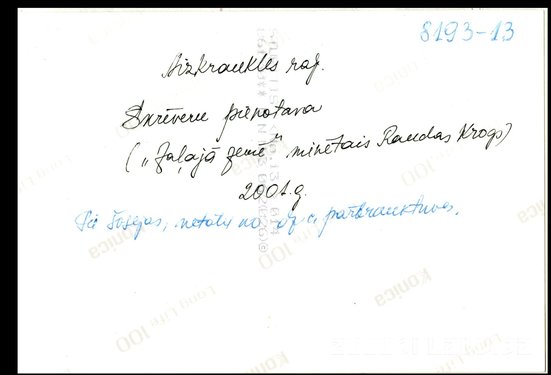 8193-13
Aizkraukles raj.
Skrīveru pienotava
("Zaļajā zemē" minētais Raudas Krogs)
2001.g.
Pie šosejas, netālu no dz.c. pārbrauktuves.
Konica
Long Life 100